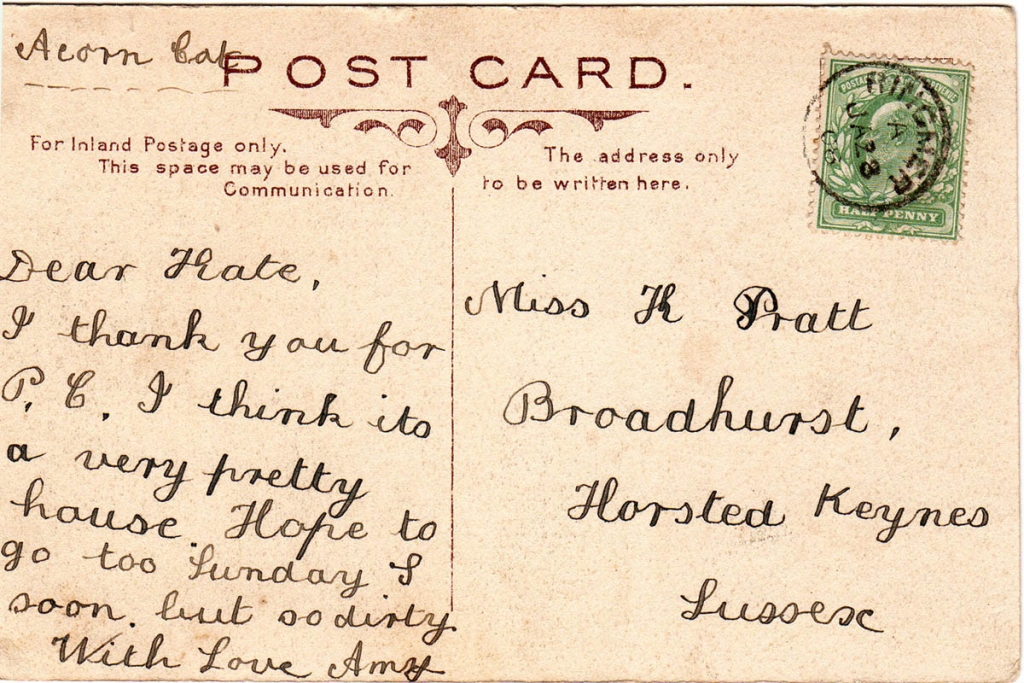 Acorn Cot
POST CARD.
For Inland Postage only.
This space may be used for
Communication.
The address only
to be written here.
RINGMER
A
JA 28
HALF PENNY
Dear Kate,
I thank you for
P. C. I think its
a very pretty
house. Hope to
go too Sunday S
soon. but so dirty
With Love Amy
Miss K Pratt
Broadhurst,
Horsted Keynes
Sussex